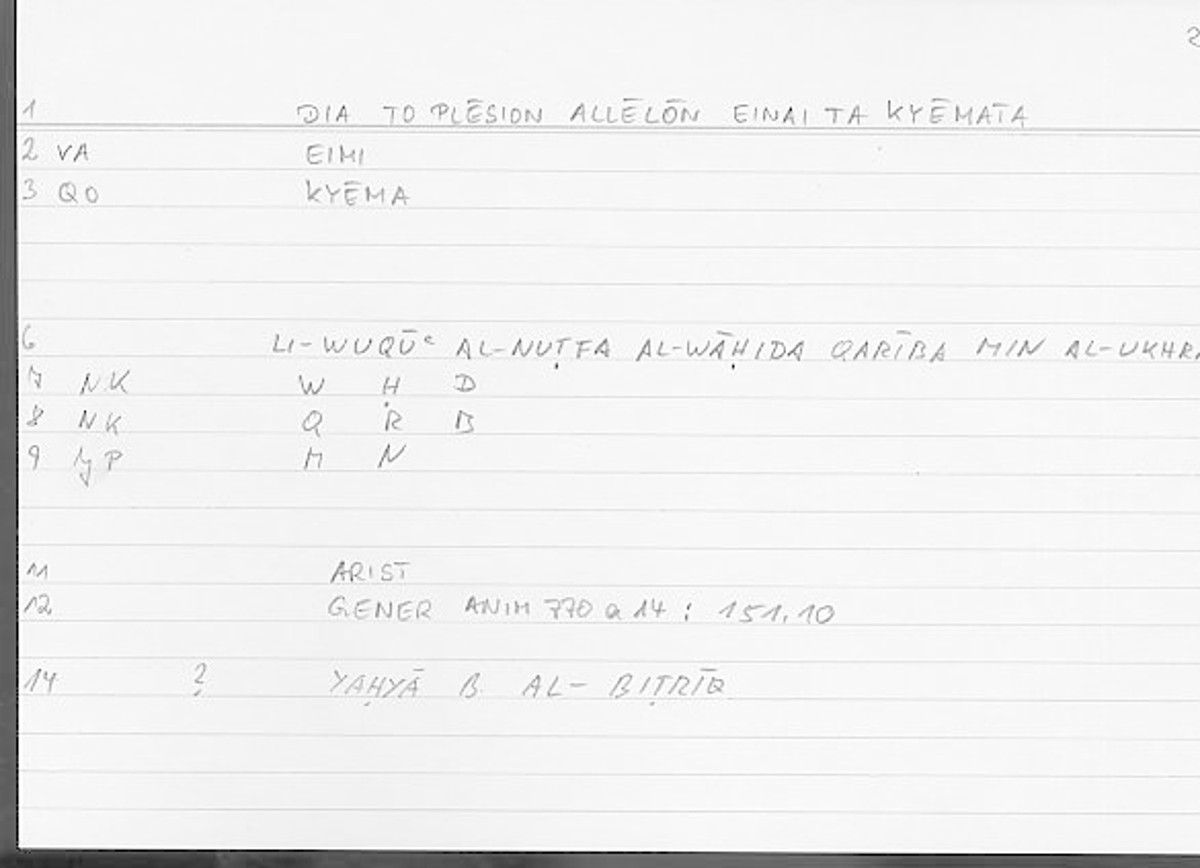 2
1 DIA TO PLĒSION ALLĒLŌN EINAI TA KYĒMATA
2 VA EIMI
3 QO KYĒMA
6 LI-WUQŪʿ AL-NUṬFA AL-WĀḤIDA QARĪBA MIN AL-UKHRA
7 NK W Ḥ D
8 NK Q R B
9 YP M N
11 ARIST
12 GENER ANIM 770 a 14 : 151,10
14 ? YAḤYĀ B. AL-BIṬRĪQ